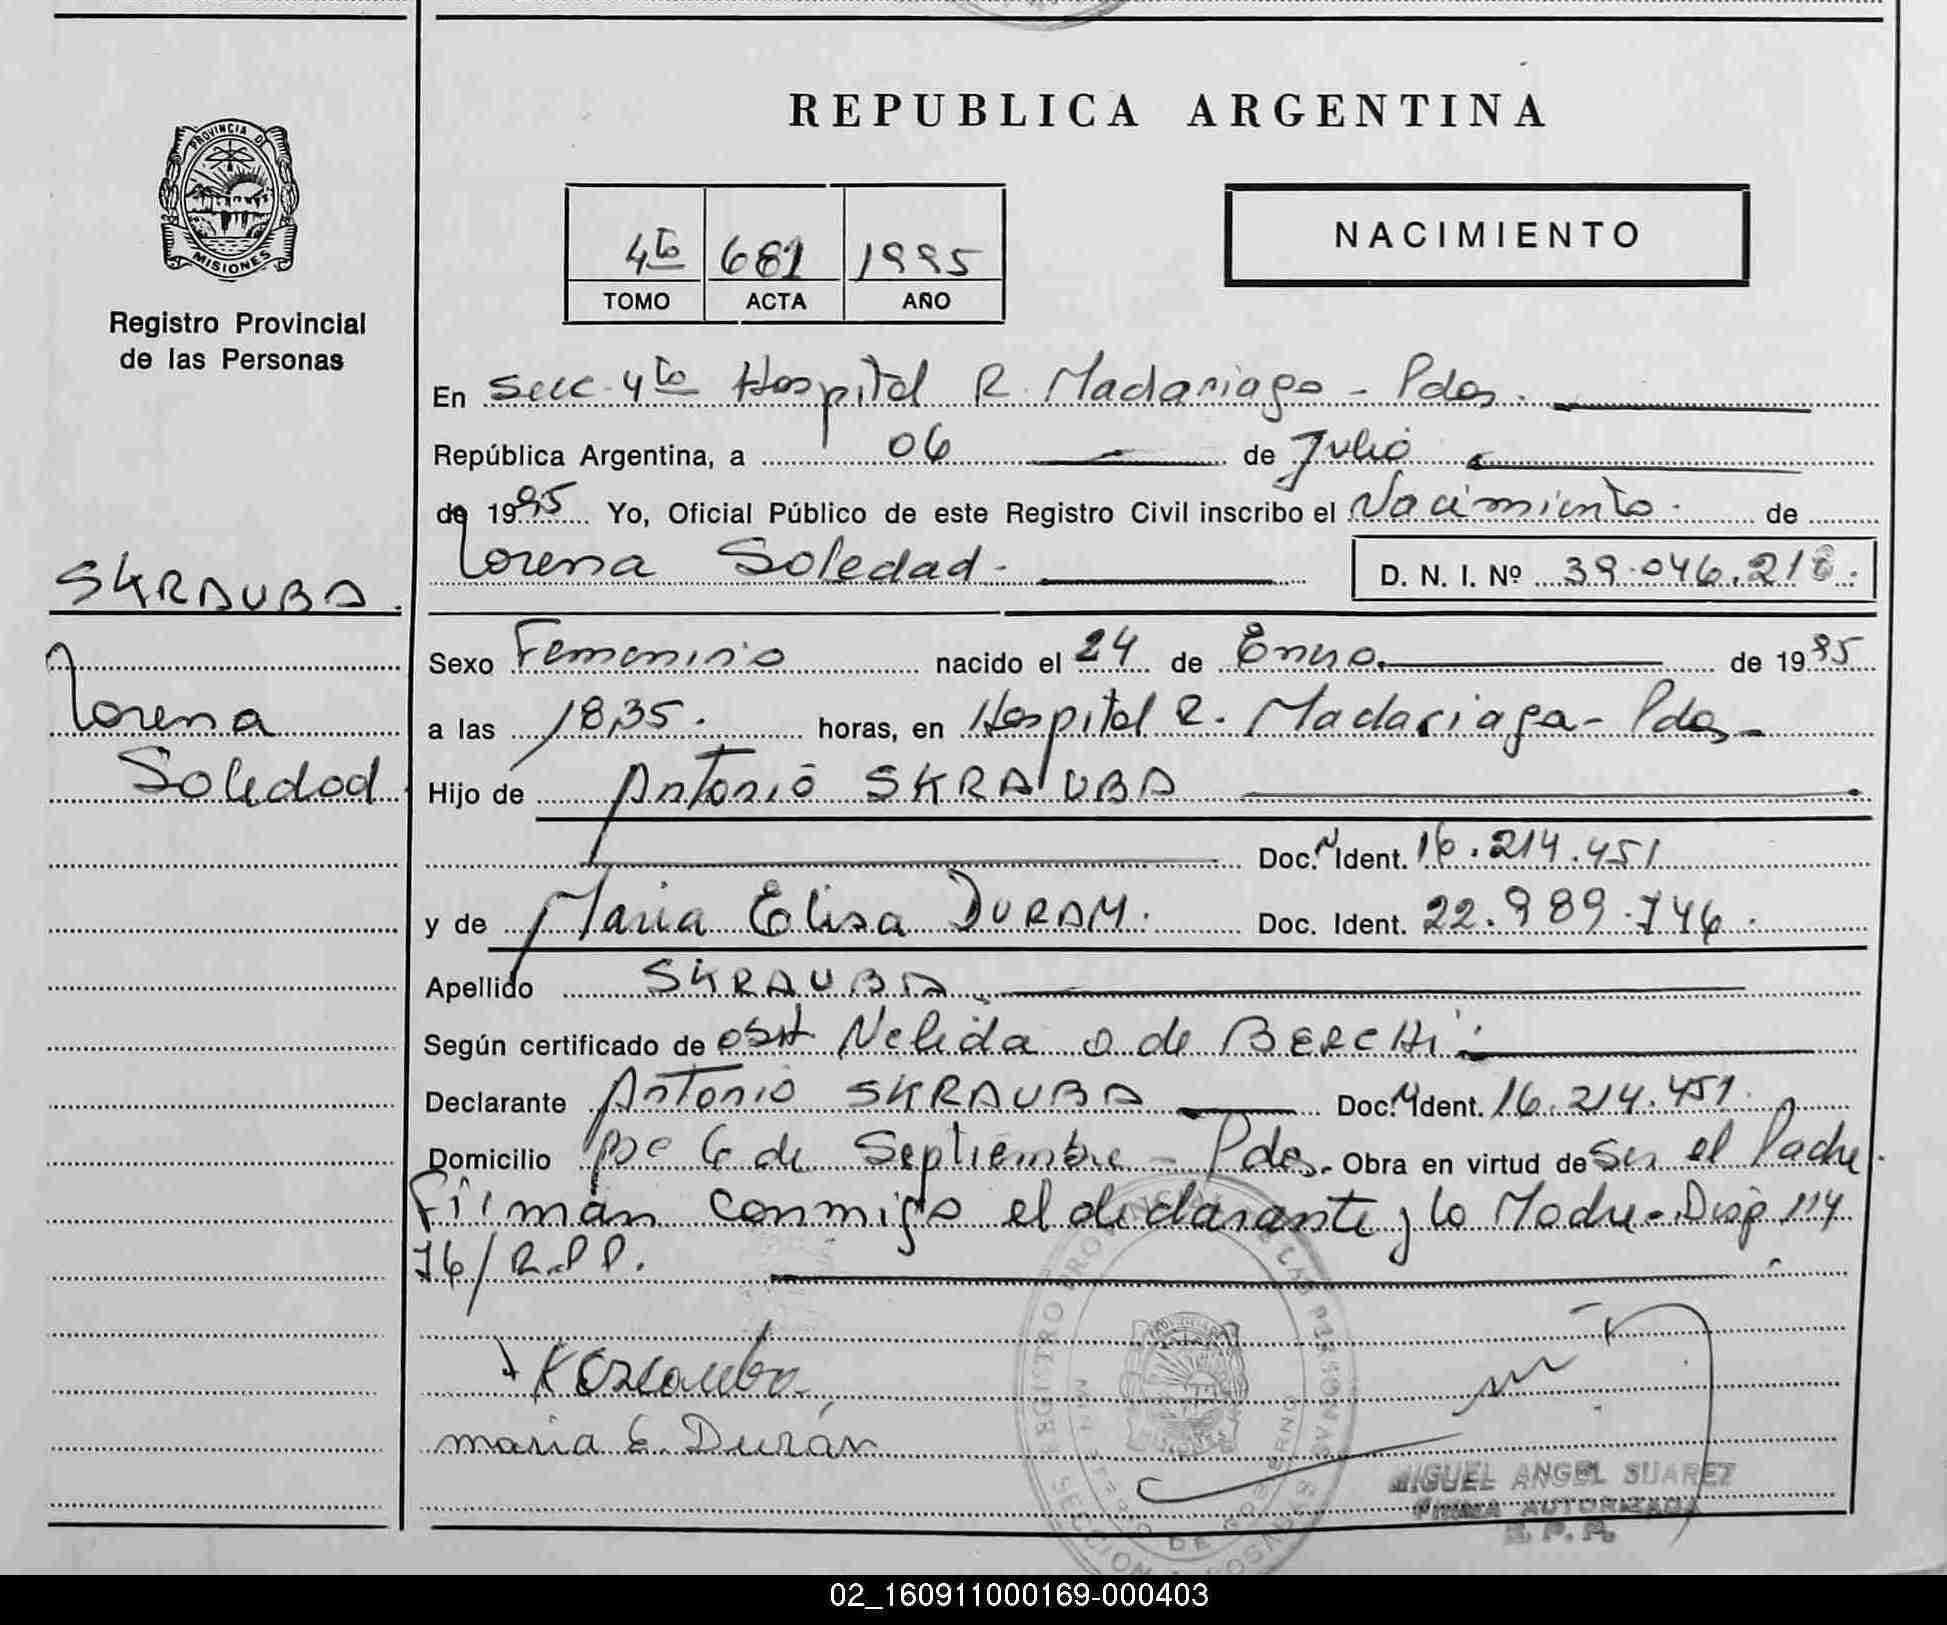 REPUBLICA ARGENTINA
PROVINCIA DE
MISIONES
Registro Provincial
de las Personas
4to 681 1995
TOMO ACTA AÑO
NACIMIENTO
En Secc. 4to Hospital R. Madariaga - Pdas.
República Argentina, a 06 de Julio
de 1995 Yo, Oficial Público de este Registro Civil inscribo el Nacimiento. de
Lorena Soledad. D. N. I. Nº 39.046.218.
SKRAUBA.
Lorena
Soledad.
Sexo Femenino nacido el 24 de Enero. de 1995
a las 18,35. horas, en Hospital R. Madariaga - Pdas -
Hijo de Antonio SKRAUBA
Doc. N Ident. 16.214.451
y de Maria Elisa DURAM. Doc. Ident. 22.989.746.
Apellido SKRAUBA.
Según certificado de Obst Nelida O. de BERCHI
Declarante Antonio SKRAUBA Doc. N Ident. 16.214.451.
Domicilio Bº 6 de Septiembre - Pdas. Obra en virtud de Ser el Padre.
Firman conmigo el declarante y la Madre - Disp 114
76/R.P.P.
maria E. Durán
REGISTRO PROVINCIAL DE LAS PERSONAS
MIGUEL ANGEL SUAREZ
FIRMA AUTORIZADA
R. P. P.
02_160911000169-000403